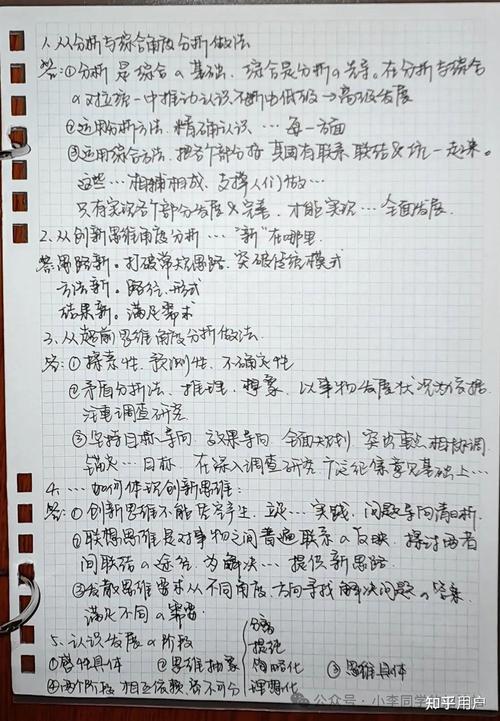 1. 从分析与综合角度分析做法
答:①分析是综合a基础,综合是分析a先导。在分析与综合
a对立统一中推动认识不断由低级→高级发展
②运用分析方法,精确认识…每一方面
③运用综合方法,把各个部分按其固有联系联结&统一起来。
这些…相辅相成、支撑人们做…
只有实现各个部分发展&完善,才能实现…全面发展.
2. 从创新思维角度分析…"新"在哪里
答思路新。打破常规思路,突破传统模式
方法新。路径、形式
结果新。满足需求
3. 从超前思维角度分析做法.
答:①探索性、预测性、不确定性
②矛盾分析法、推理、想象,以事物发展状况为依据
注重调查研究
③坚持目标导向、效果导向,全面规划,突出重点相协调
锚定…目标,在深入调查研究广泛征集意见基础上…
4. …如何体现创新思维:
答:①创新思维不能凭空产生,立足…实践,问题导向清晰.
②联想思维是对事物之间普遍联系a反映,探讨两者
间联结a途径,为解决…提供新思路.
③发散思维要求从不同角度、方向寻找解决问题a答案
满足不同a需要.
5. 认识发展a阶段
①感性具体 ②思维抽象
分离
提纯
简略化
③思维具体
④两个阶段相互依赖密不可分
公众号·小李同学
知乎用户